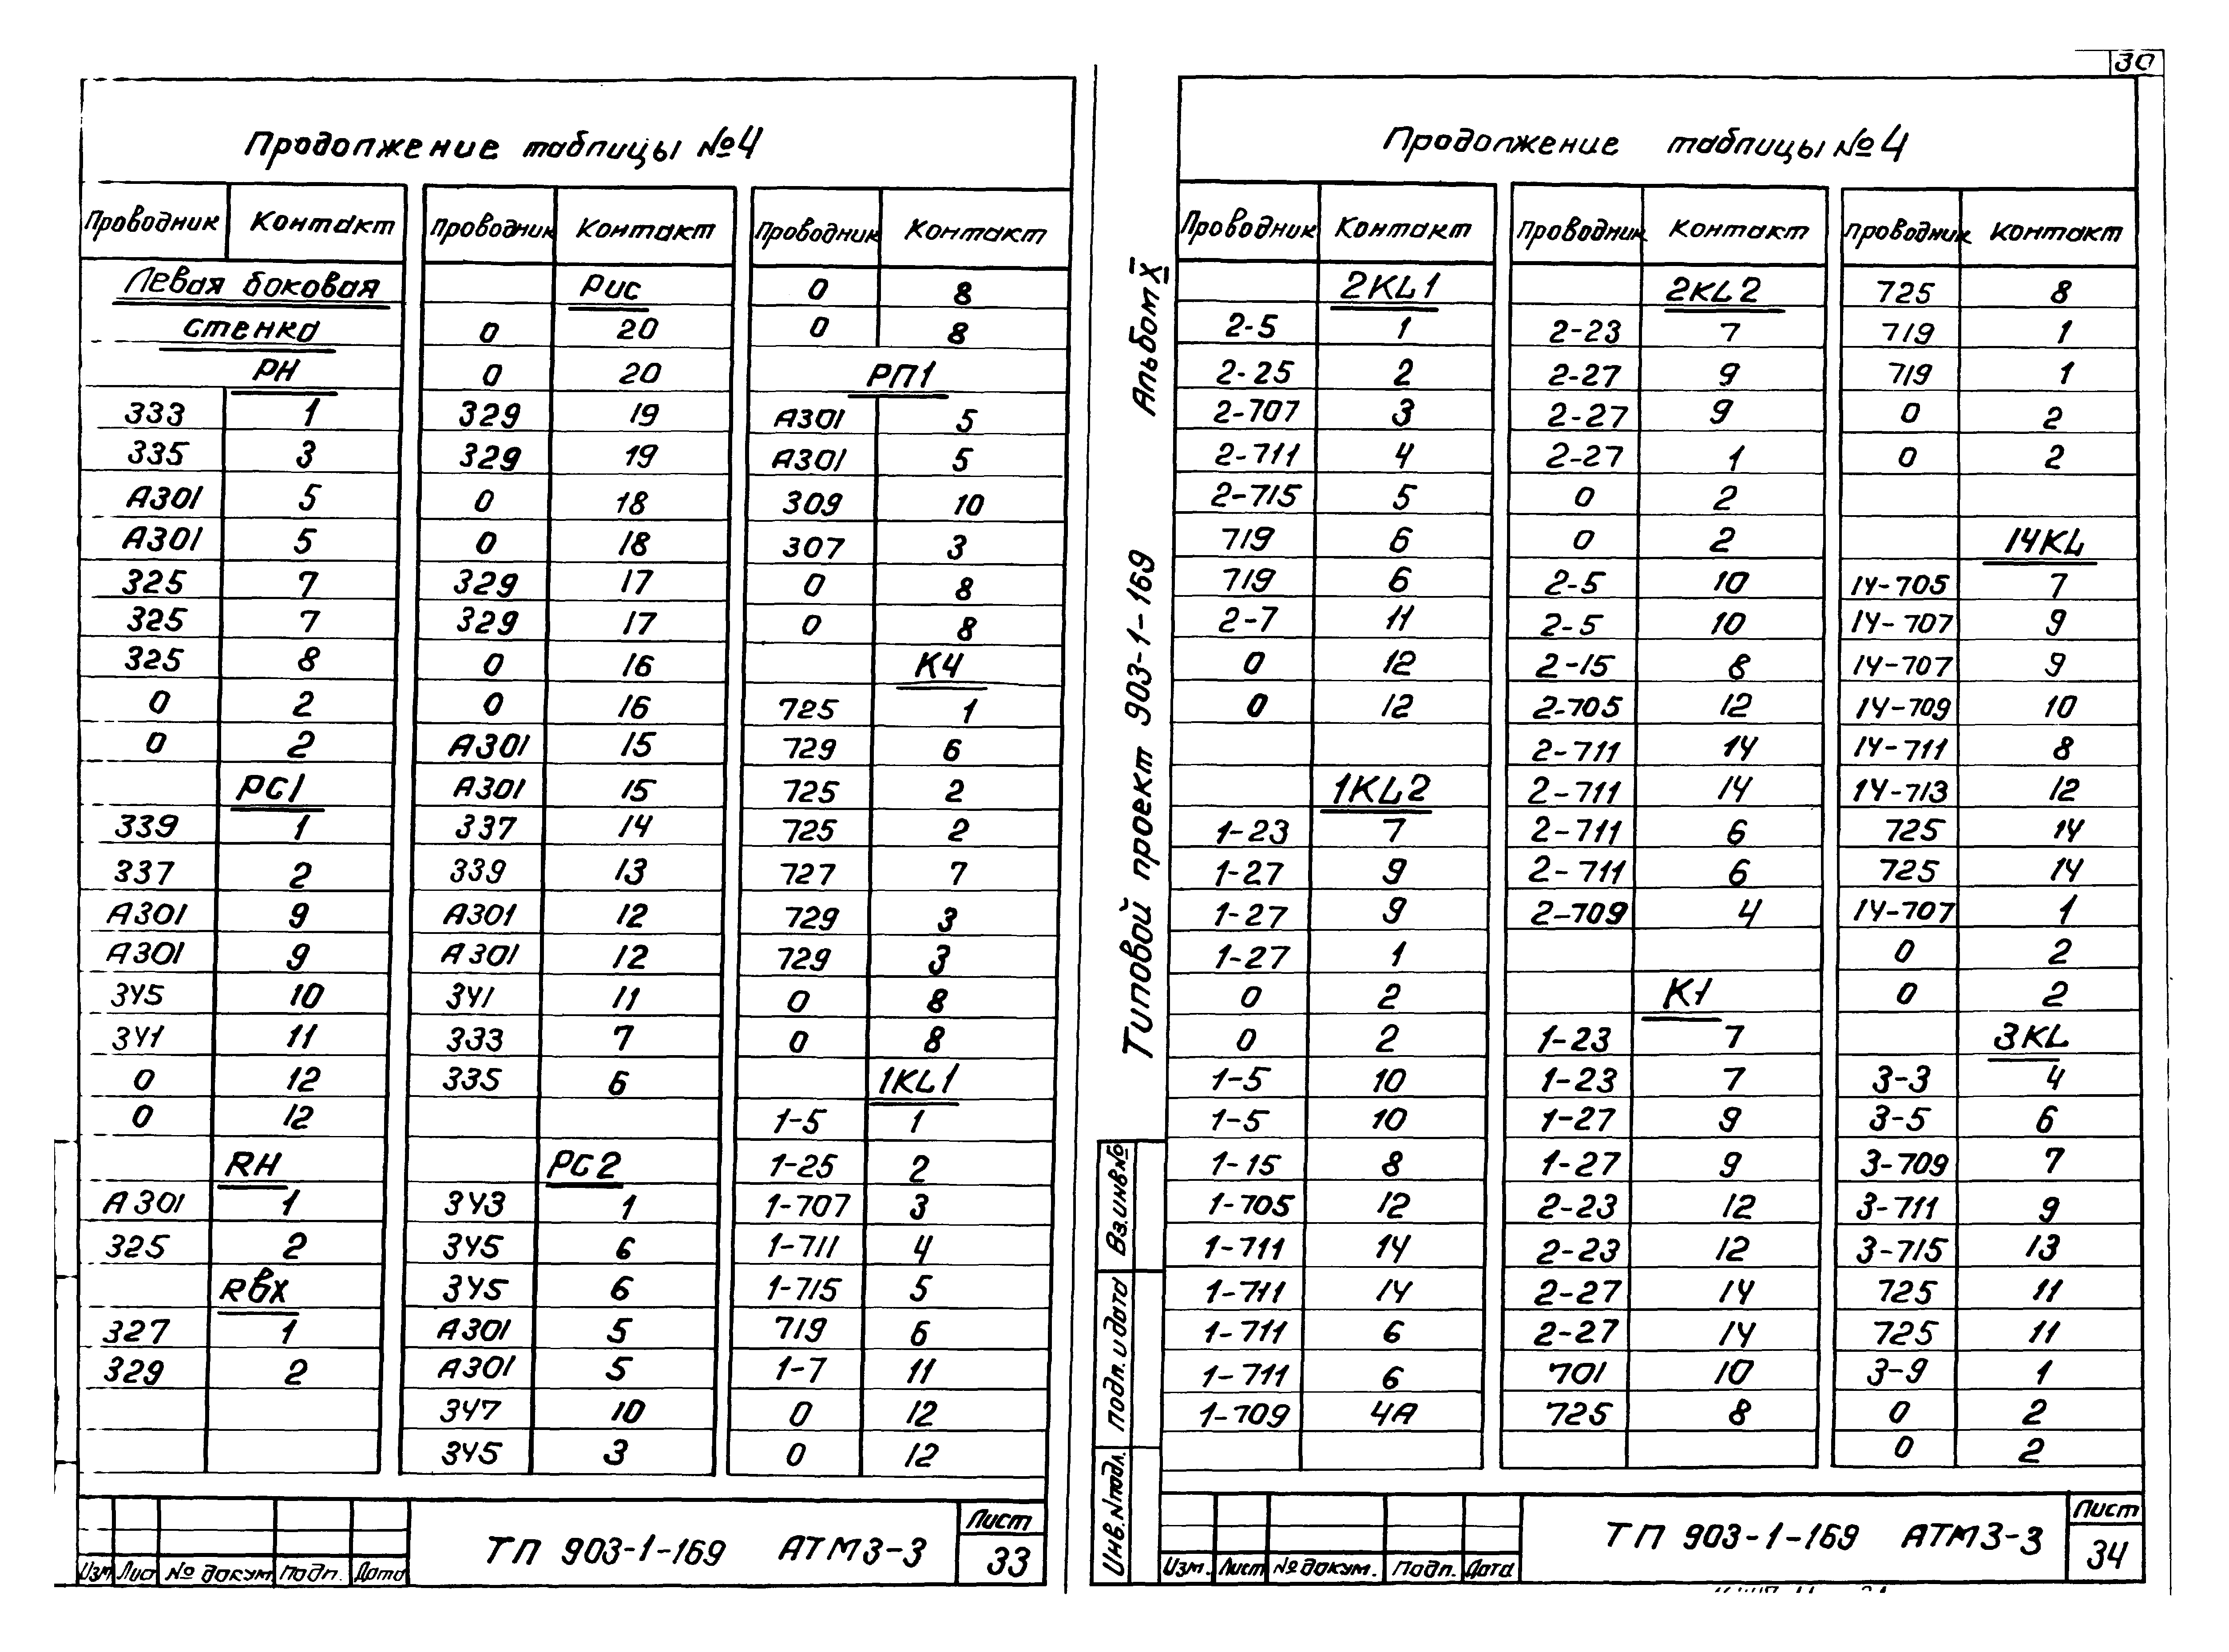 30
Продолжение таблицы №4
Проводник Контакт
Левая боковая
стенка
РН
333 1
335 3
А301 5
А301 5
325 7
325 7
325 8
0 2
0 2
РС1
339 1
337 2
А301 9
А301 9
345 10
341 11
0 12
0 12
RН
А301 1
325 2
Rвх
327 1
329 2
Проводник Контакт
Рис
0 20
0 20
329 19
329 19
0 18
0 18
329 17
329 17
0 16
0 16
А301 15
А301 15
337 14
339 13
А301 12
А301 12
341 11
333 7
335 6
РС2
343 1
345 6
345 6
А301 5
А301 5
347 10
345 3
Проводник Контакт
0 8
0 8
РП1
А301 5
А301 5
309 10
307 3
0 8
0 8
К4
725 1
729 6
725 2
725 2
727 7
729 3
729 3
0 8
0 8
1KL1
1-5 1
1-25 2
1-707 3
1-711 4
1-715 5
719 6
1-7 11
0 12
0 12
Изм Лист № докум. Подп. Дата
ТП 903-1-169 АТМ3-3
Лист
33
Альбом X
Типовой проект 903-1-169
Вз.инв.№
Подп. и дата
Инв.№подл.
Продолжение таблицы №4
Проводник Контакт
2KL1
2-5 1
2-25 2
2-707 3
2-711 4
2-715 5
719 6
719 6
2-7 11
0 12
0 12
1KL2
1-23 7
1-27 9
1-27 9
1-27 1
0 2
0 2
1-5 10
1-5 10
1-15 8
1-705 12
1-711 14
1-711 14
1-711 6
1-711 6
1-709 4А
Проводник Контакт
2KL2
2-23 7
2-27 9
2-27 9
2-27 1
0 2
0 2
2-5 10
2-5 10
2-15 8
2-705 12
2-711 14
2-711 14
2-711 6
2-711 6
2-709 4
К1
1-23 7
1-23 7
1-27 9
1-27 9
2-23 12
2-23 12
2-27 14
2-27 14
701 10
725 8
Проводник Контакт
725 8
719 1
719 1
0 2
0 2
14KL
14-705 7
14-707 9
14-707 9
14-709 10
14-711 8
14-713 12
725 14
725 14
14-707 1
0 2
0 2
3KL
3-3 4
3-5 6
3-709 7
3-711 9
3-715 13
725 11
725 11
3-9 1
0 2
0 2
Изм. Лист № докум. Подп. Дата
ТП 903-1-169 АТМ3-3
Лист
34